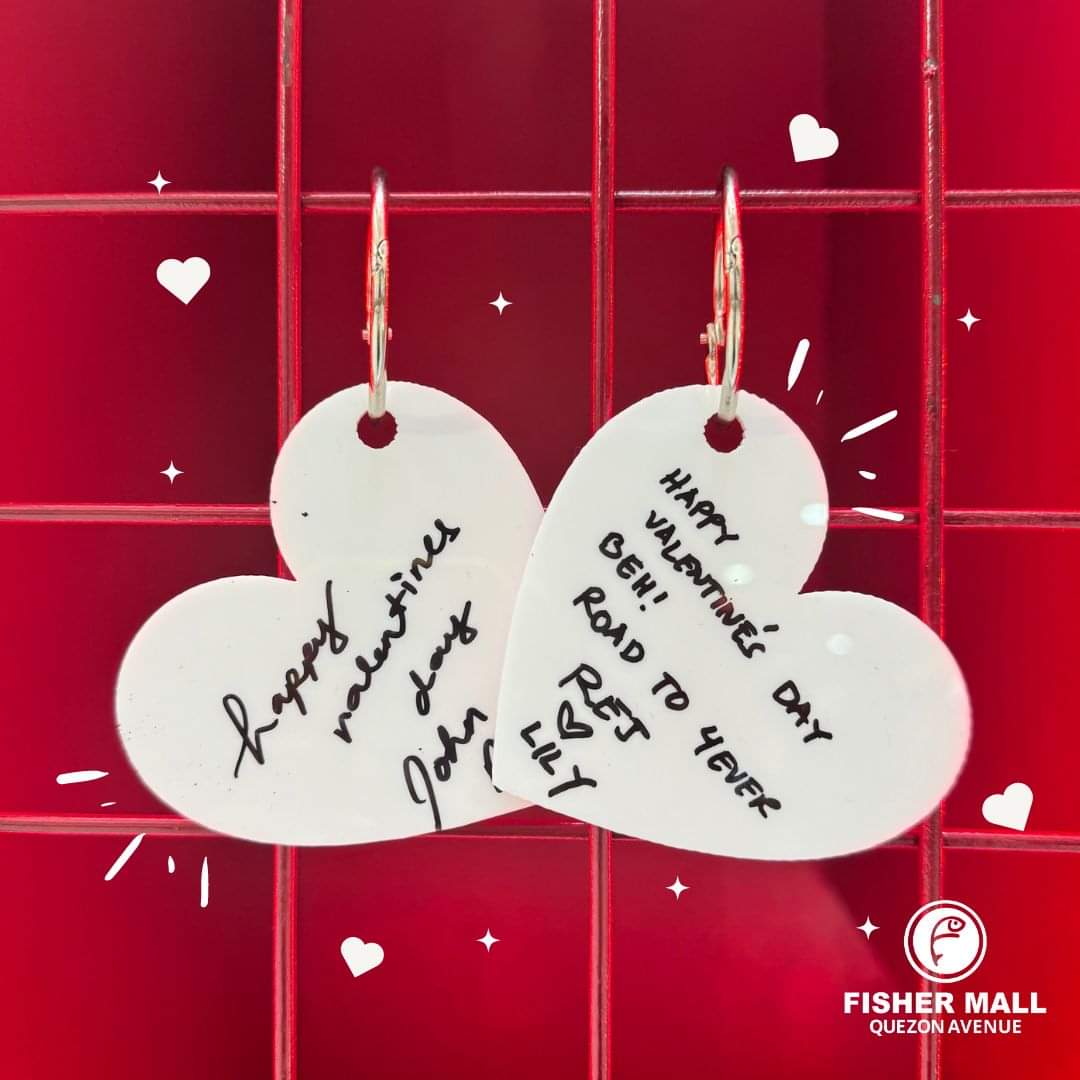 happy
valentines
day
John
HAPPY
VALENTINE'S DAY
BEH!
ROAD TO 4EVER
REJ
LILY
FISHER MALL
QUEZON AVENUE